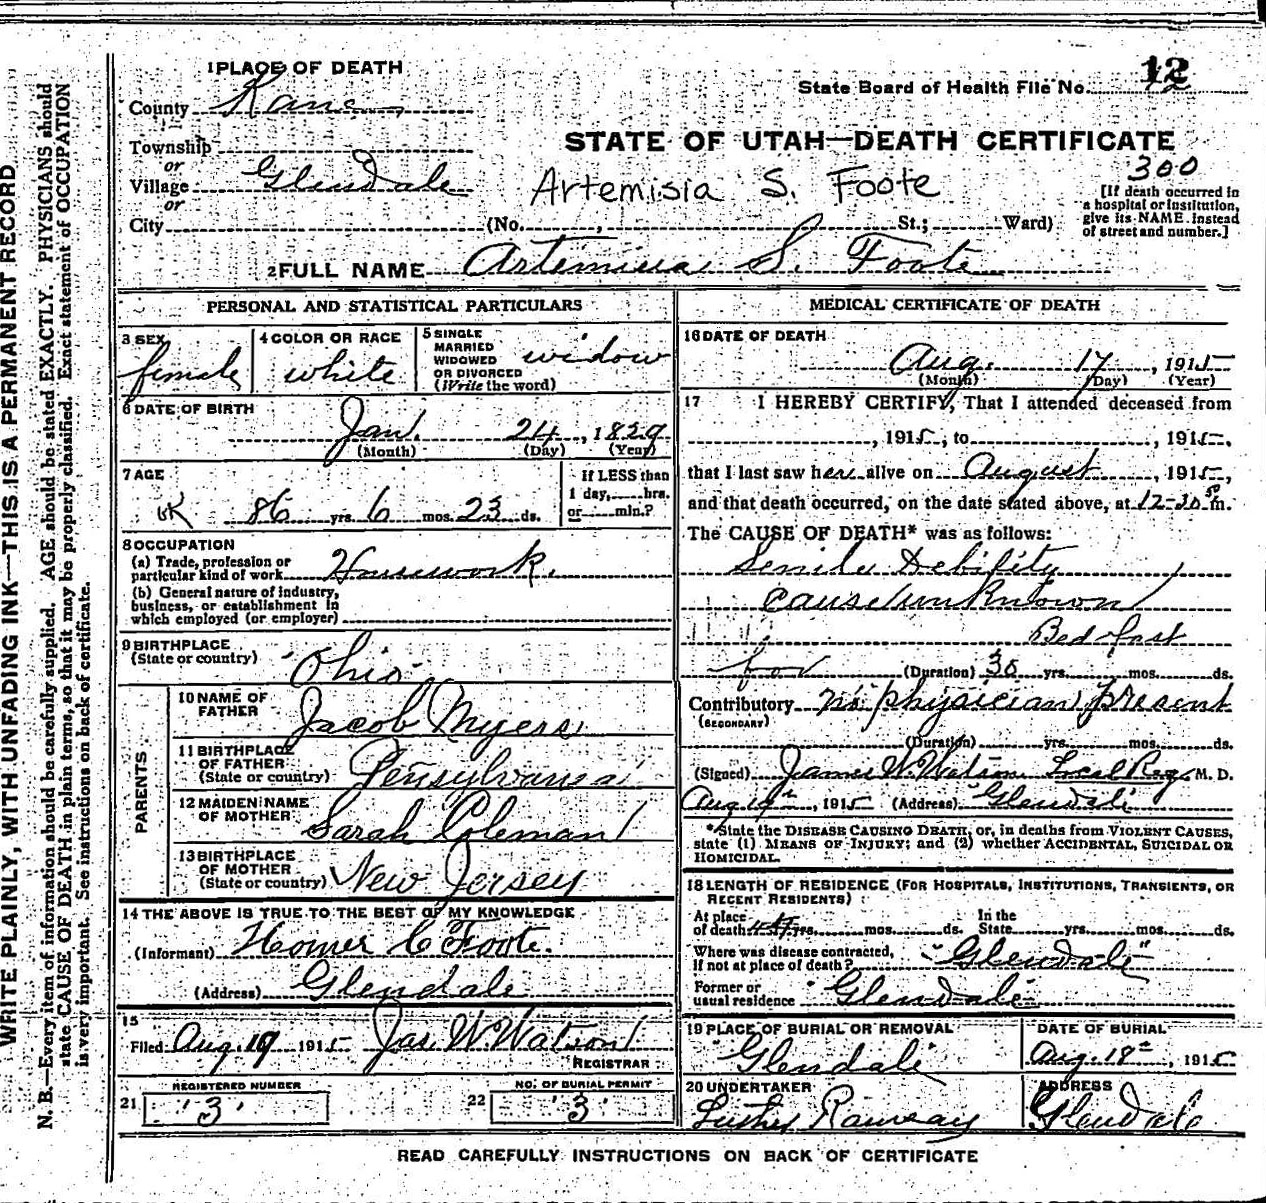 1 PLACE OF DEATH
County Kane
State Board of Health File No. 12
STATE OF UTAH—DEATH CERTIFICATE
Township
or
Village Glendale
or
City (No. , St.; Ward)
Artemisia S. Foote
300
[If death occurred in
a hospital or institution,
give its NAME instead
of street and number.]
2 FULL NAME Artemisia S. Foote
PERSONAL AND STATISTICAL PARTICULARS
3 SEX
female
4 COLOR OR RACE
white
5 SINGLE
MARRIED
WIDOWED
OR DIVORCED
(Write the word)
widow
6 DATE OF BIRTH
Jan. 24, 1829
(Month) (Day) (Year)
7 AGE
OK 86 yrs. 6 mos. 23 ds.
If LESS than
1 day, hrs.
or min.?
8 OCCUPATION
(a) Trade, profession or
particular kind of work Housework.
(b) General nature of industry,
business, or establishment in
which employed (or employer)
9 BIRTHPLACE
(State or country) Ohio
PARENTS
10 NAME OF
FATHER Jacob Myers
11 BIRTHPLACE
OF FATHER
(State or country) Pensylvania
12 MAIDEN NAME
OF MOTHER Sarah Coleman
13 BIRTHPLACE
OF MOTHER
(State or country) New Jersey
14 THE ABOVE IS TRUE TO THE BEST OF MY KNOWLEDGE
(Informant) Homer C Foote.
(Address) Glendale
15
Filed Aug. 19 1915 Jas. W. Watson
REGISTRAR
REGISTERED NUMBER
21 3
NO. OF BURIAL PERMIT
22 3
MEDICAL CERTIFICATE OF DEATH
16 DATE OF DEATH
Aug. 17, 1915
(Month) (Day) (Year)
17 I HEREBY CERTIFY, That I attended deceased from
, 1915, to , 1915,
that I last saw her alive on August , 1915,
and that death occurred, on the date stated above, at 12-30 m.
The CAUSE OF DEATH* was as follows:
Senile Debility
cause unknown
Bed fast
for (Duration) 30 yrs. mos. ds.
Contributory no physician present
(SECONDARY)
(Duration) yrs. mos. ds.
(Signed) James W. Watson Local Reg. M. D.
Aug 19th, 1915 (Address) Glendale
*State the DISEASE CAUSING DEATH, or, in deaths from VIOLENT CAUSES,
state (1) MEANS OF INJURY; and (2) whether ACCIDENTAL, SUICIDAL OR
HOMICIDAL.
18 LENGTH OF RESIDENCE (FOR HOSPITALS, INSTITUTIONS, TRANSIENTS, OR
RECENT RESIDENTS)
At place
of death yrs. mos. ds.
In the
State yrs. mos. ds.
Where was disease contracted,
if not at place of death? "Glendale"
Former or
usual residence Glendale
19 PLACE OF BURIAL OR REMOVAL
Glendale
DATE OF BURIAL
Aug. 18th, 1915
20 UNDERTAKER
Luther Ramsay
ADDRESS
Glendale
READ CAREFULLY INSTRUCTIONS ON BACK OF CERTIFICATE
WRITE PLAINLY, WITH UNFADING INK—THIS IS A PERMANENT RECORD
N. B.—Every item of information should be carefully supplied. AGE should be stated EXACTLY. PHYSICIANS should
state CAUSE OF DEATH in plain terms, so that it may be properly classified. Exact statement of OCCUPATION
is very important. See instructions on back of certificate.